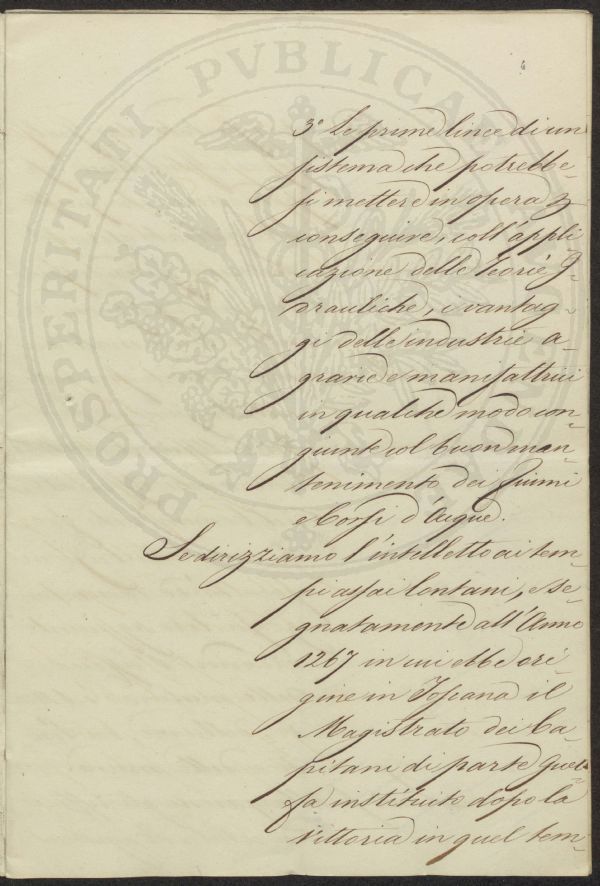 PROSPERITATI PVBLICAE
3º Le prime linee di un
sistema che potrebbe-
si mettere in opera p
conseguire, coll'appli
cazione delle teorie I-
drauliche, i vantag-
gi delle industrie a-
grarie e manifattrici
in qualche modo con-
giunte col buon man-
tenimento dei fiumi
e Corpi d'acque.
Se dirizziamo l'intelletto ai tem-
pi assai lontani, e se-
gnatamente all'Anno
1267 in cui ebbe ori-
gine in Toscana il
Magistrato dei Ca-
pitani di parte Guel-
fa instituito dopo la
vittoria in quel tem-